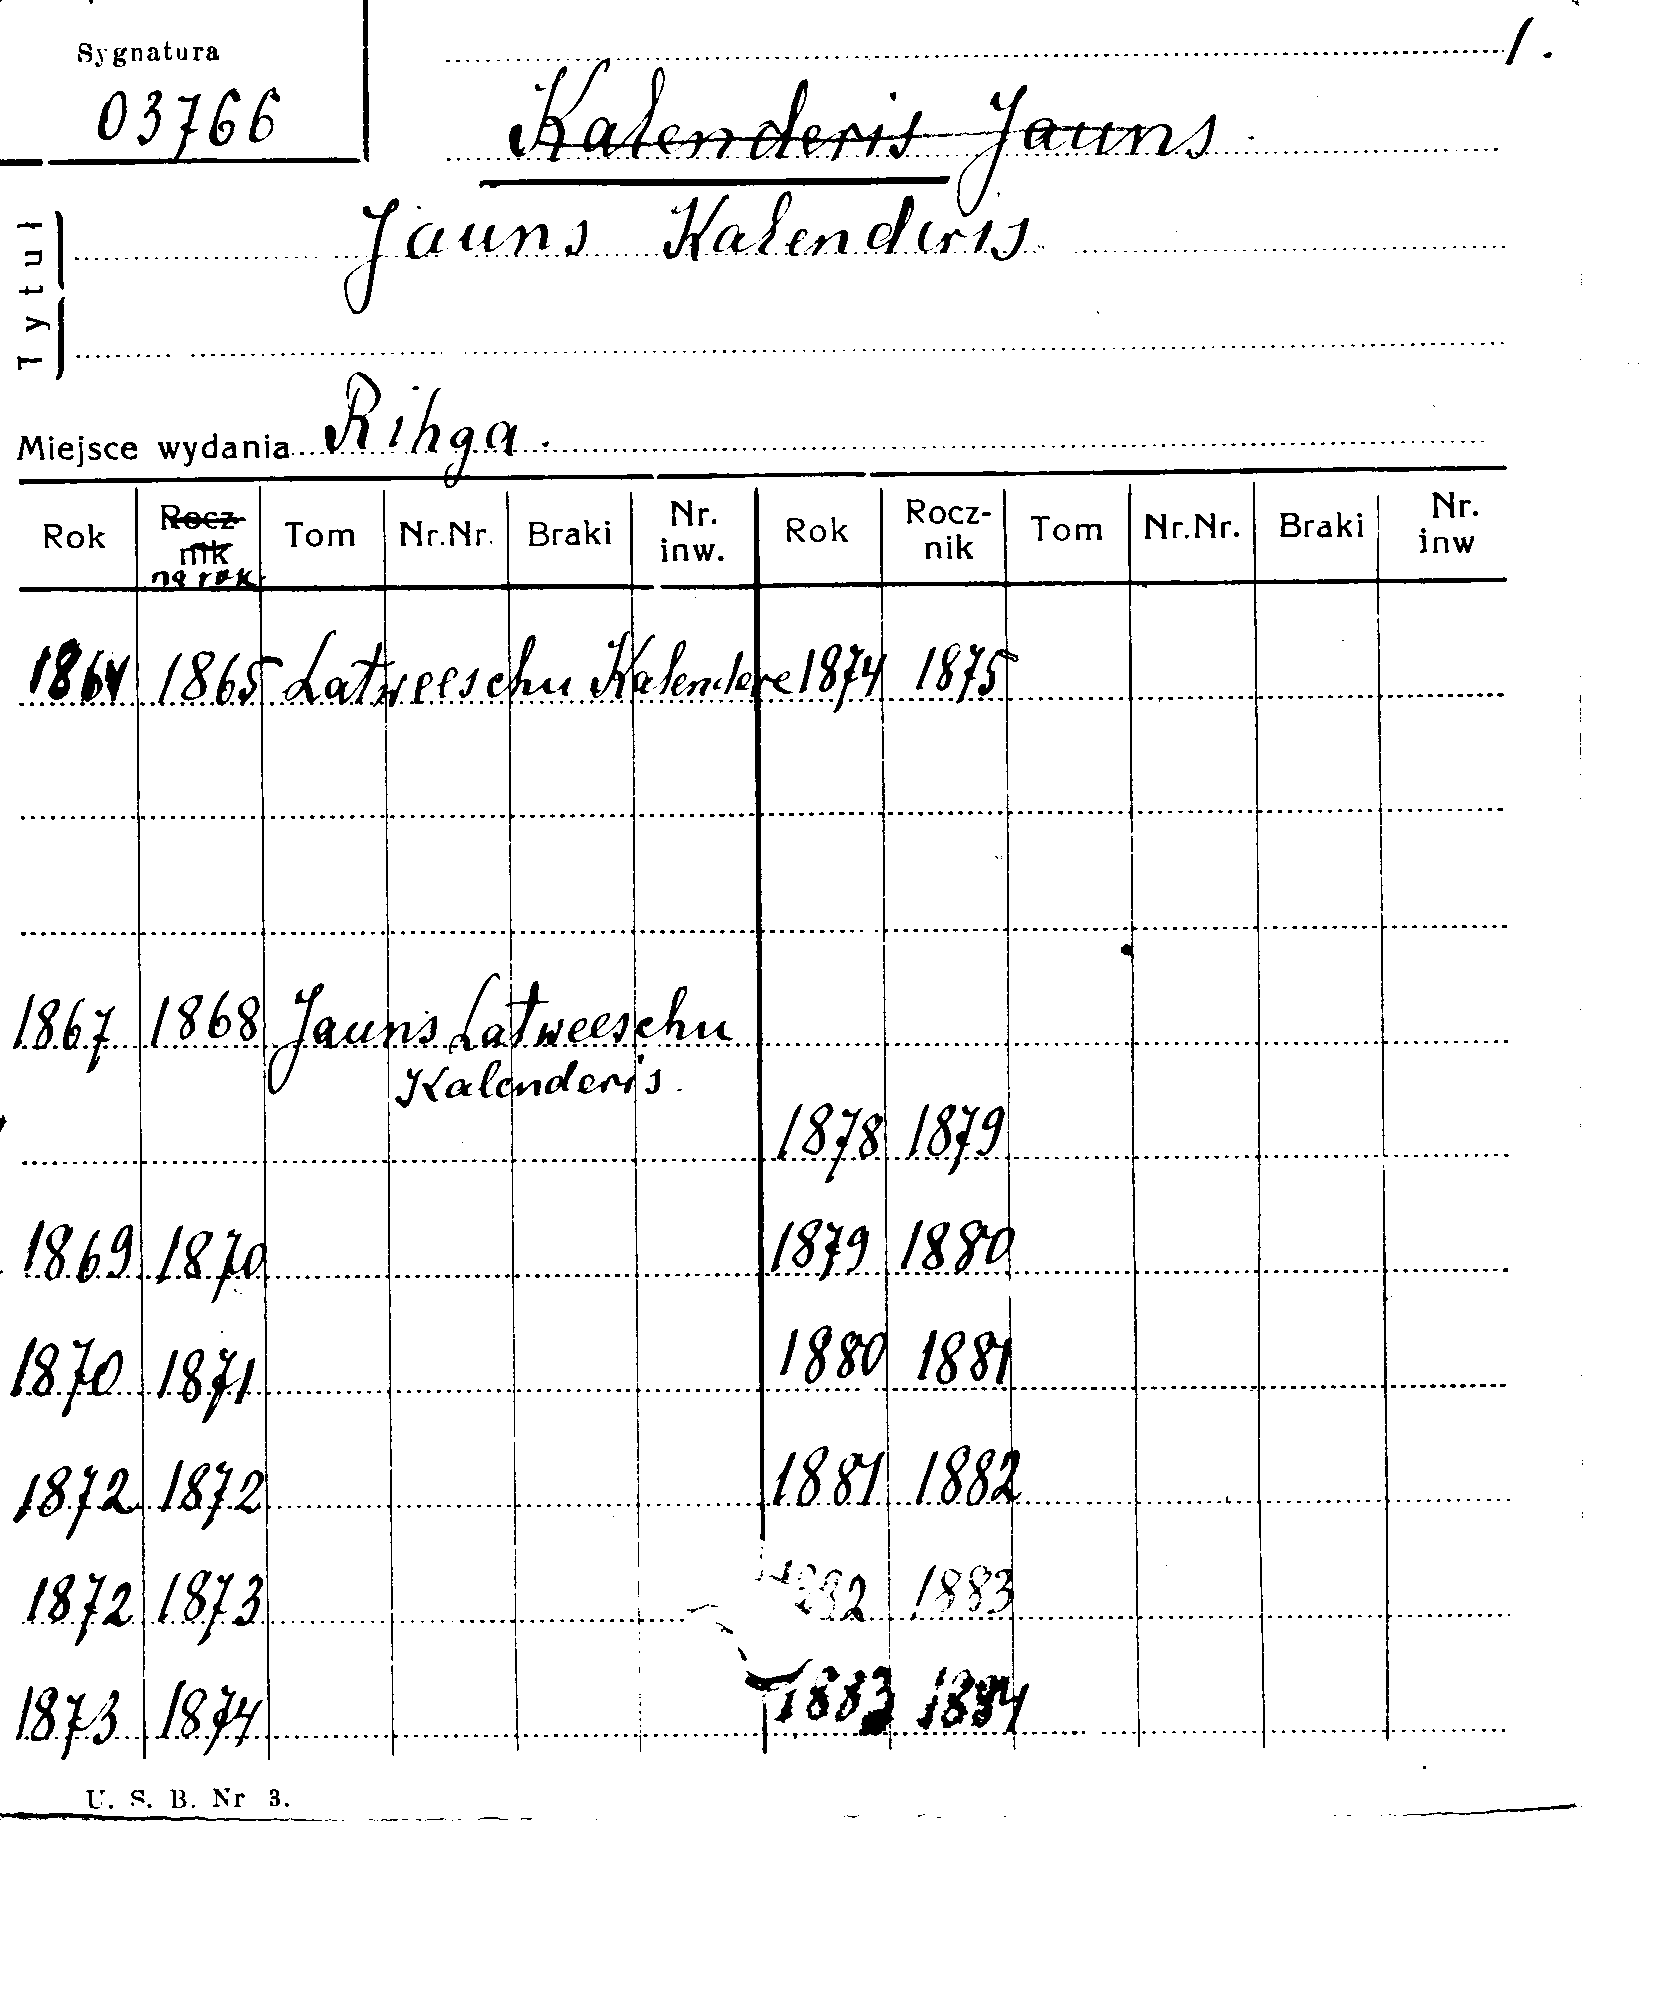 Sygnatura
1.
03766
Kalenderis Jauns
Tytuł
Jauns Kalenderis
Miejsce wydania Rihga.
Rok Rocznik na rok Tom Nr.Nr. Braki Nr. inw. Rok Rocz-nik Tom Nr.Nr. Braki Nr. inw
1864 1865 Latweeschu Kalendere 1874 1875
1867 1868 Jauns Latweeschu
Kalenderis.
1878 1879
1869 1870 1879 1880
1870 1871 1880 1881
1872 1872 1881 1882
1872 1873 1882 1883
1873 1874 1883 1884
U. S. B. Nr 3.